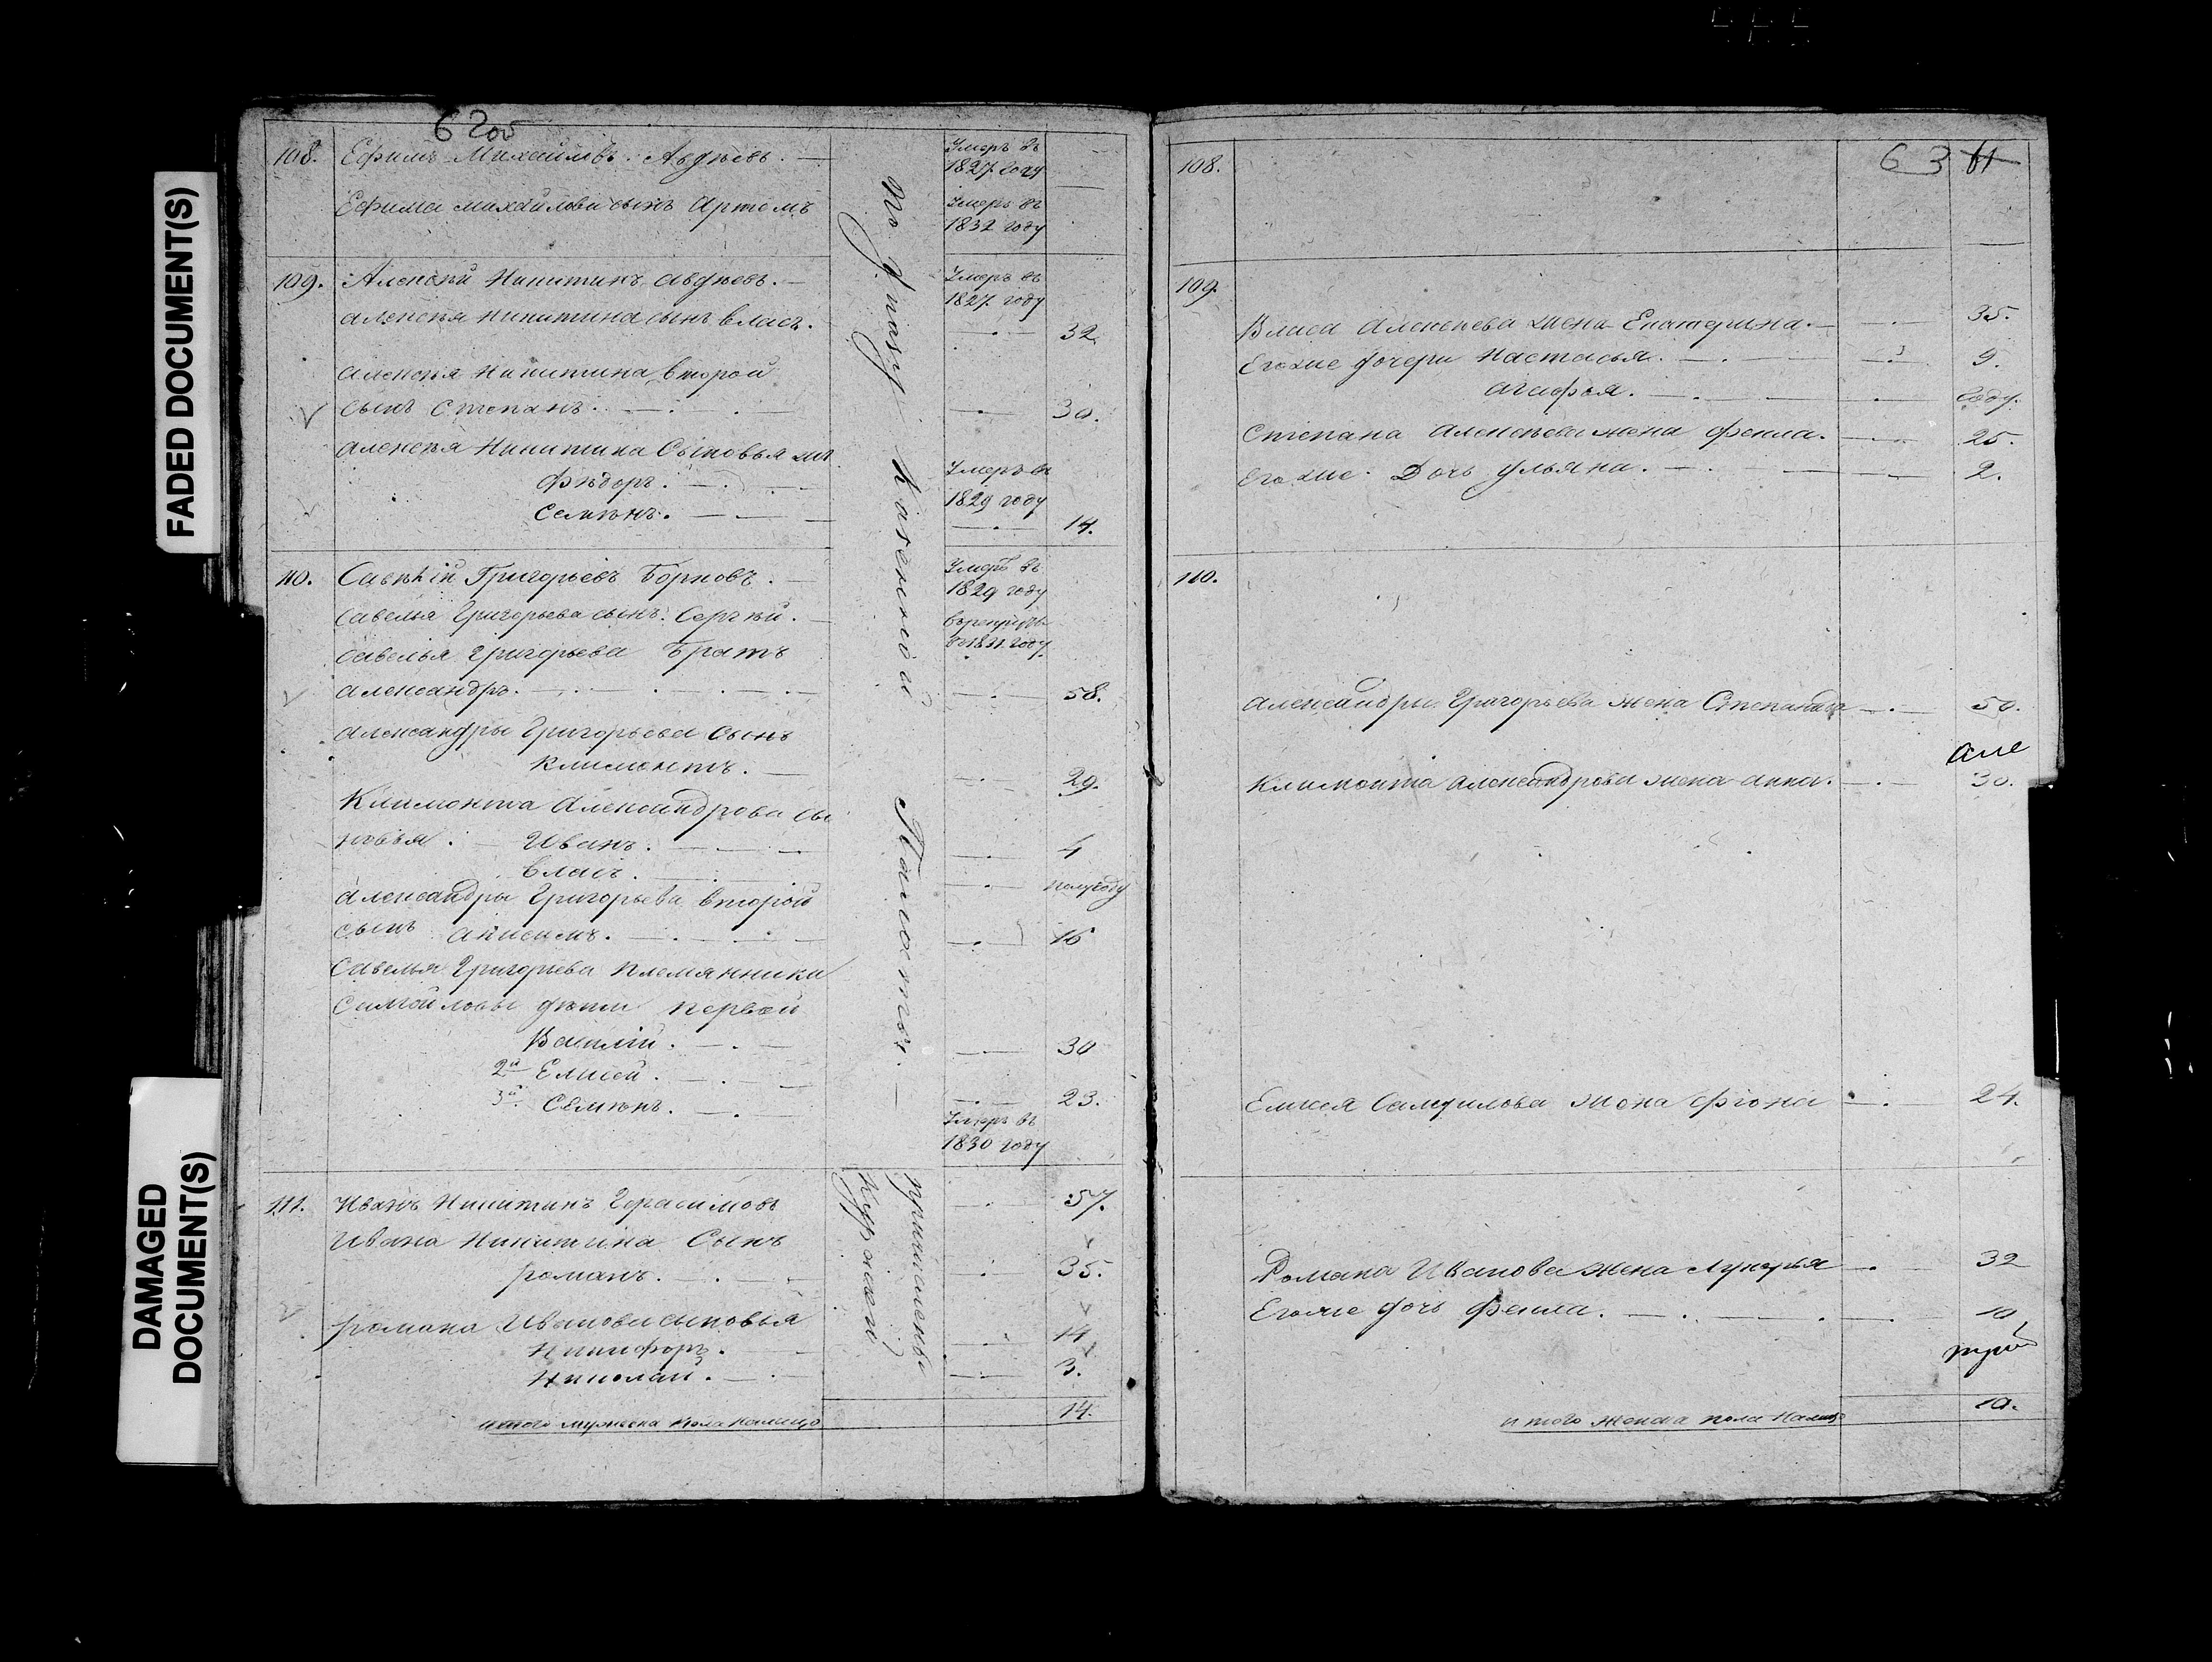 FADED DOCUMENT(S)
DAMAGED
DOCUMENT(S)
62об
108. Ефимъ Михайловъ Авдѣевъ. Умеръ въ
1827 году
Ефима Михайлова сынъ Артемъ Умеръ въ
1832 году
109. Алексѣй Никитинъ Авдѣевъ. Умеръ въ
1827 году
Алексѣя Никитина сынъ Власъ. 32.
Алексѣя Никитина второй
сынъ Степанъ. 30.
Алексѣя Никитина Сыновья
Фѣдоръ. Умеръ въ
1829 году
Семѣнъ. 14.
110. Савѣлій Григорьевъ Борковъ. Умеръ въ
1829 году
Савелья Григорьева сынъ Сергѣй.
въ 1831 году
Савелья Григорьева Братъ
Александръ. 58.
Александры Григорьева Сынъ
Климонтъ. 29.
Климонта Александрова сы
новья. Иванъ. 4
Власъ. полугоду
Александры Григорьева второй
сынъ Анисимъ. 16
Савелья Григорьева племянники
Самойловы дѣти первой
Василій. 30
2й Елисей. 23.
3й Семѣнъ. Умеръ въ
1830 году
111. Иванъ Никитинъ Герасимовъ 57.
Ивана Никитина Сынъ
Романъ. 35.
Романа Иванова сыновья
Никифоръ. 14
Николай. 3.
итого мужеска пола налицо 14.
По указу Казенной Палаты.
причисленъ
63 61
108.
109.
Власа Алексѣева жена Екатерина. 35.
Его же дочери Настасья. 9.
Агафья. году.
Степана Алексѣева жена Фекла. 25.
Его же Дочь Ульяна. 2.
110.
Александры Григорьева жена Степанида 50.
Климонта Александрова жена Анна. 30.
Елисея Самуилова жена Фіона 24.
Романа Иванова жена Лукерья 32
Его же дочь Фекла. 10
итого женска пола налицо 10.